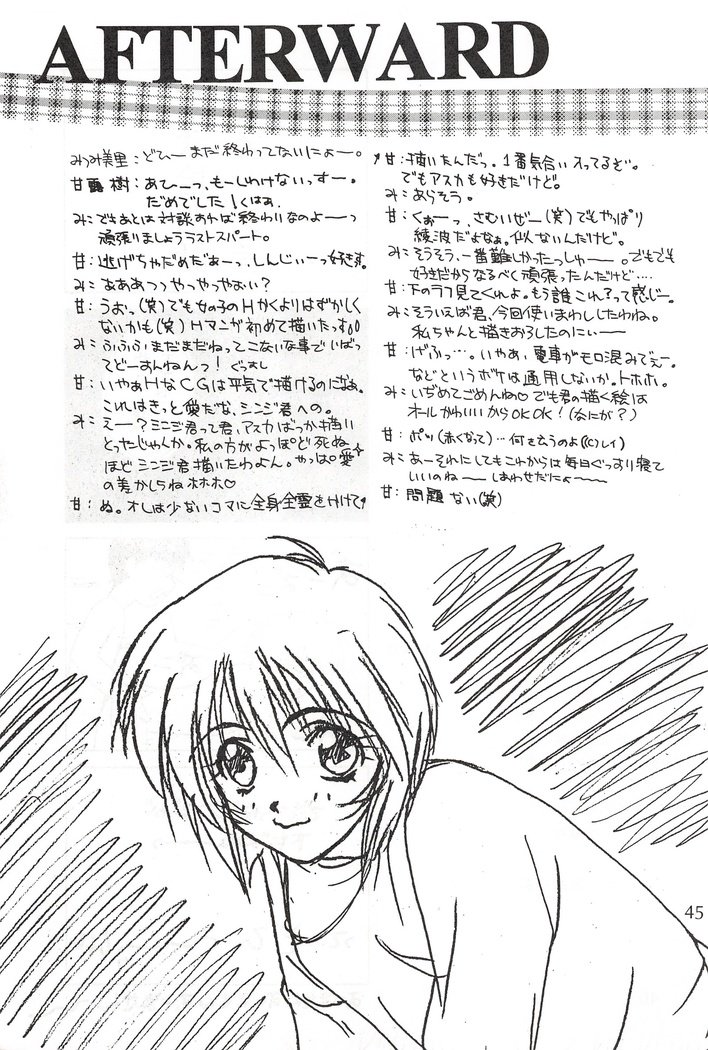 AFTERWARD
みつみ美里：どひー まだ終わってないにょー。
甘露 樹：あひーっ、もーしわけないっすー。
だめでした しくはぁ
みこ：でもあとは対談すれば終わりなのよーっ
頑張りましょうラストスパート。
甘：逃げちゃだめだぁーっ、しんじぃーっ好きす。
みこ：ああああつっ やっやっやぉい？
甘：うお、(笑)でも女の子のHかくよりはずかしく
ないかも(笑)Hマンガ初めて描いたっす。
みこ：ふふふふまだまだねってこないな事でいばっ
てどーすんねんっ！ぐっすし
甘：いやぁHなCGは平気で描けるのになぁ。
これはきっと愛だな、シンジ君への。
みこ：えー？シンジ君って君、アスカばっか描い
とったじゃんか。私の方がよっぽど死ぬ
ほどシンジ君描いたわよん。やっぱ愛
の差かしらねホホホ♡
甘：ぬ。オレは少ないコマに全身全霊をかけて
甘：描いたんだっ。1番気合い入ってるぞ。
でもアスカも好きだけど。
みこ：あらそう。
甘：くぉーっ、さむいぜー(笑)でもやっぱり
綾波だよなぁ。似ないんだけど。
みこ：そうそう、一番難しかったっしゅー。でもでも
好きだからなるべく頑張ったんだけど‥‥
甘：下のラフ見てくれよ。もう誰これ？って感じー。
みこ：そういえば君、今回使いまわししたわね。
私ちゃんと描きおろしたのにぃー
甘：げふっ…。いやぁ、電車がモロ混みでぇー。
などというボケは通用しないか。トホホ。
みこ：いぢめてごめんね♡でも君の描く絵は
オールかわいいからOK OK！(なにが？)
甘：ポッ(赤くなって)…何を言うのよ((C)レイ)
みこ：あーそれにしてもこれからは毎日ぐっすり寝て
いいのねー しあわせだにょ〜
甘：問題ない(笑)
45